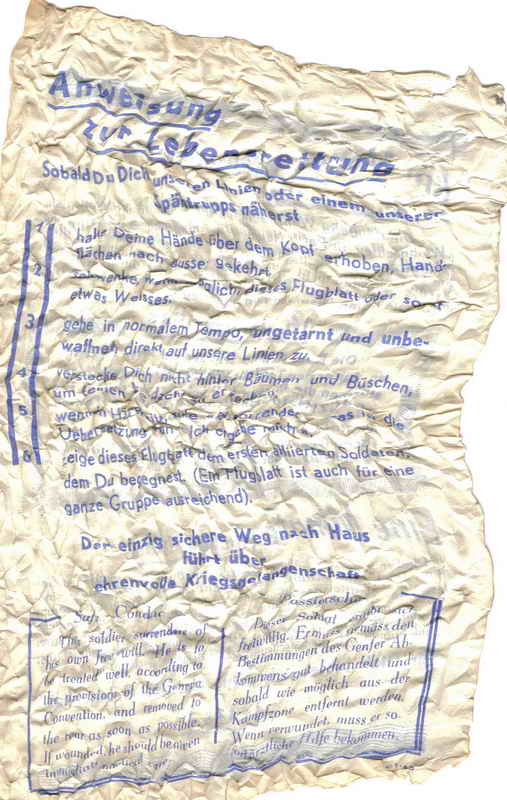 Anweisung
zur Lebensrettung
Sobald Du Dich unseren Linien oder einem unserer
Spähtrupps näherst
1 halte Deine Hände über dem Kopf erhoben, Hand-
flächen nach ausser gekehrt.
2 schwenke, wenn möglich dieses Flugblatt oder sonst
etwas Weisses.
3 gehe in normalem Tempo, ungetarnt und unbe-
waffnet, direkt auf unsere Linien zu.
4 verstecke Dich nicht hinter Bäumen und Büschen,
um
5 surrender die
Uebersetzung Ich ergebe mich
6 zeige dieses Flugblatt dem ersten alliierten Soldaten,
dem Du begegnest. (Ein Flugblatt ist auch für eine
ganze Gruppe ausreichend).
Der einzig sichere Weg nach Haus
führt über
ehrenvolle Kriegsgefangenschaft
Safe Conduct
This soldier surrenders of
his own free will. He is to
be treated well, according to
the provisions of the Geneva
Convention, and removed to
the rear as soon as possible.
If wounded, he should be given
immediate medical care.
Passierschein
Dieser Soldat ergibt sich
freiwillig. Er muss gemäss den
Bestimmungen des Genfer Ab-
kommens gut behandelt und
sobald wie möglich aus der
Kampfzone entfernt werden.
Wenn verwundet, muss er so-
fort ärztliche Hilfe bekommen.